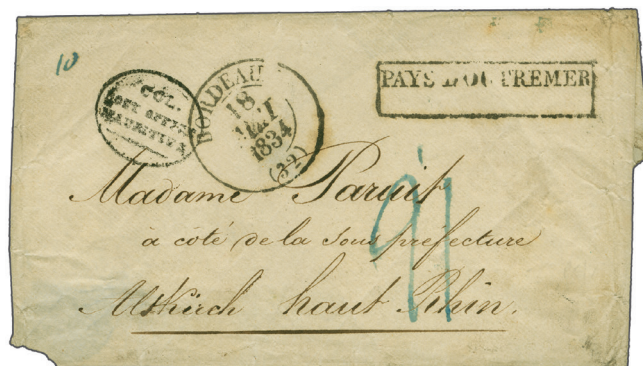 10
COL.
POST OFFICE
MAURITIUS
BORDEAUX
18
1834
(32)
PAYS D'OUTREMER
Madame
à côté de la Sous préfecture
Altkirch haut Rhin.